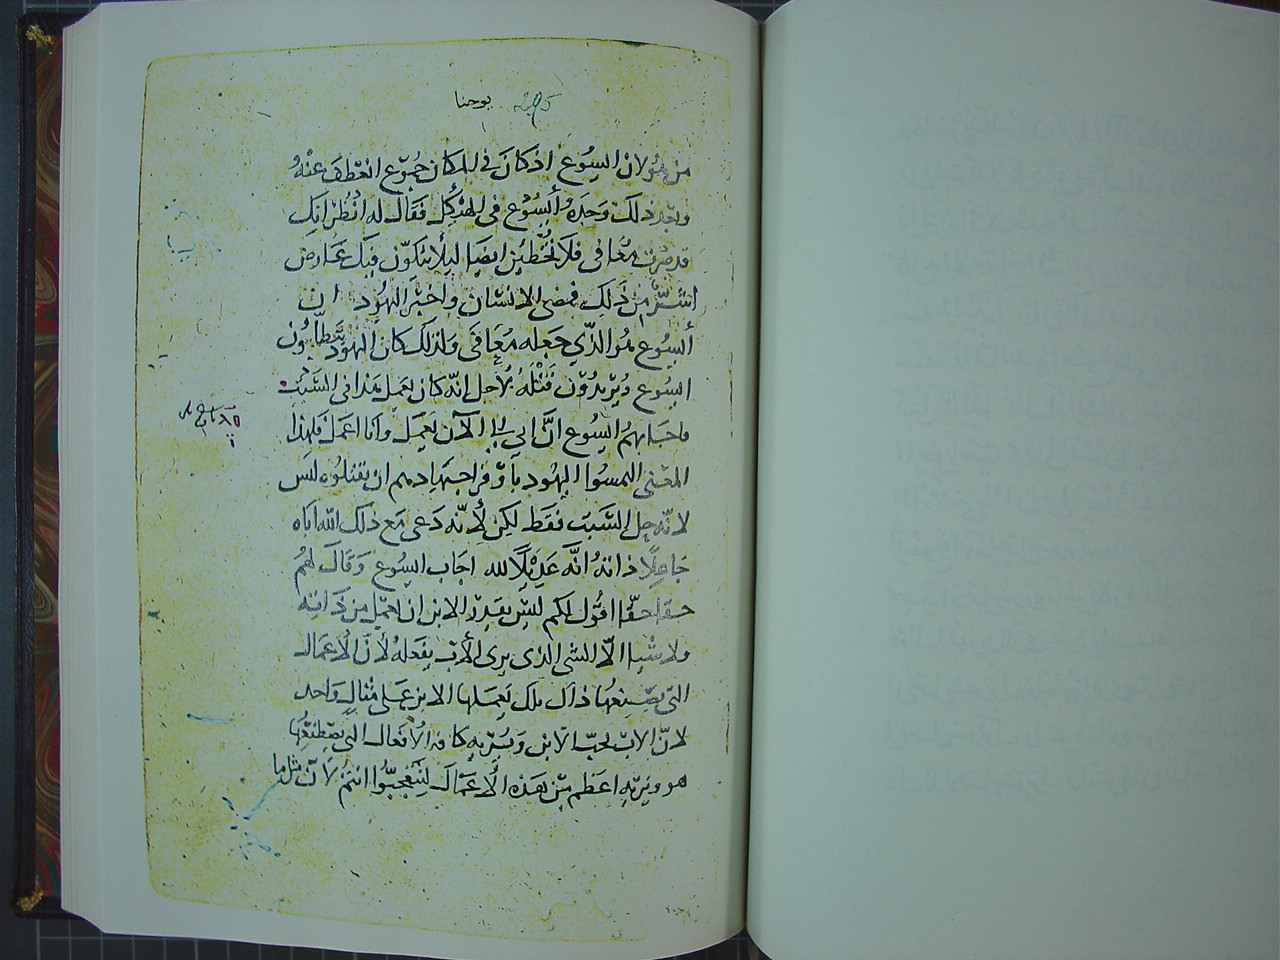 يوحنا 295
من هو لان اليسوع اذ كان في المكان جموع انعطف عنه
وبعد ذلك وجده أيسوع في الهيكل فقال له انظر انك
قد صرت معافى فلا تخطين ايضا ليلا يتكون فيك عارض
اشر من ذلك فمضى الانسان واخبر اليهود ان
أيسوع هو الذي جعله معافى ولذلك كان اليهود يتطلبون
ايسوع ويريدون قتله لاجل انه كان يعمل هذا في السبت
فاجابهم ايسوع انّ ابي الى الآن يعمل وانا اعمل فلهذا
المعنى التمسوا اليهود باوفر اجتهادهم ان يقتلوه ليس
لانه حل السبت فقط لكن لأنّه دعى مع ذلك الله اباه
جاعلًا ذاته انّه عديلًا لله اجاب ايسوع وقال لهم
حقا حقّا اقول لكم ليس يقدر الابن ان يعمل من ذاته
ولا شيا الّا الشي الذى يرى الأب يفعله لأنّ الاعمال
التي يصنعها ذاك تلك يعملها الابن على مثال واحد
لانّ الاب يحبّ الابن ويُريه كافه الأفعال التي يصطنعها
هو ويريه اعظم من هذه الأعمال لتتعجبوا انتم لان مثل ما